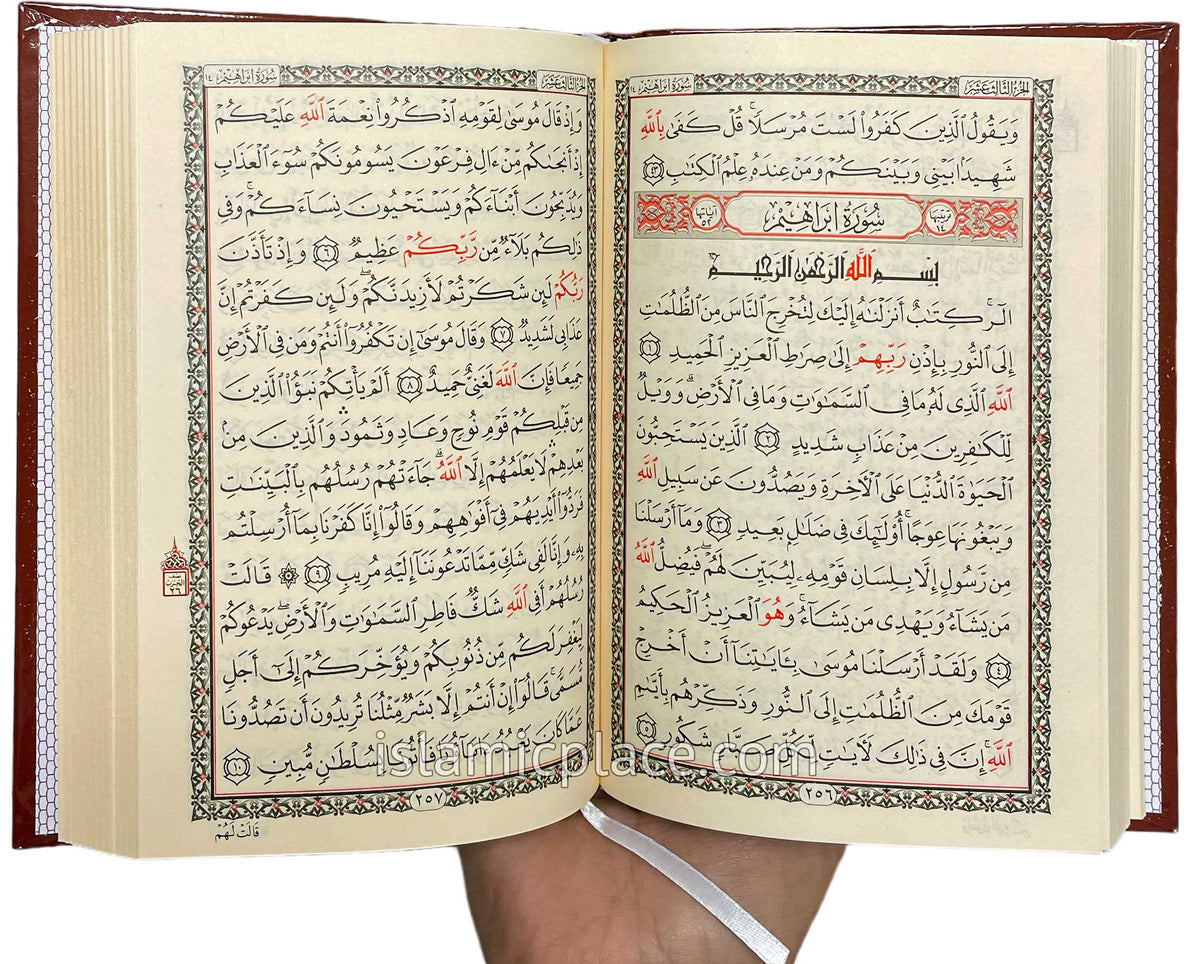 الجزء الثالث عشر
سورة ابراهيم ١٤
وَيَقُولُ ٱلَّذِينَ كَفَرُوا۟ لَسْتَ مُرْسَلًا ۚ قُلْ كَفَىٰ بِٱللَّهِ
شَهِيدًۢا بَيْنِى وَبَيْنَكُمْ وَمَنْ عِندَهُۥ عِلْمُ ٱلْكِتَٰبِ ٤٣
ترتيبها ١٤ سُورَةُ ابراهِيْم آياتها ٥٢
بِسْمِ ٱللَّهِ ٱلرَّحْمَٰنِ ٱلرَّحِيمِ
الٓر ۚ كِتَٰبٌ أَنزَلْنَٰهُ إِلَيْكَ لِتُخْرِجَ ٱلنَّاسَ مِنَ ٱلظُّلُمَٰتِ
إِلَى ٱلنُّورِ بِإِذْنِ رَبِّهِمْ إِلَىٰ صِرَٰطِ ٱلْعَزِيزِ ٱلْحَمِيدِ ١
ٱللَّهِ ٱلَّذِى لَهُۥ مَا فِى ٱلسَّمَٰوَٰتِ وَمَا فِى ٱلْأَرْضِ ۗ وَوَيْلٌ
لِّلْكَٰفِرِينَ مِنْ عَذَابٍ شَدِيدٍ ٢ ٱلَّذِينَ يَسْتَحِبُّونَ
ٱلْحَيَوٰةَ ٱلدُّنْيَا عَلَى ٱلْءَاخِرَةِ وَيَصُدُّونَ عَن سَبِيلِ ٱللَّهِ
وَيَبْغُونَهَا عِوَجًا ۚ أُو۟لَٰٓئِكَ فِى ضَلَٰلٍۭ بَعِيدٍ ٣ وَمَآ أَرْسَلْنَا
مِن رَّسُولٍ إِلَّا بِلِسَانِ قَوْمِهِۦ لِيُبَيِّنَ لَهُمْ ۖ فَيُضِلُّ ٱللَّهُ
مَن يَشَآءُ وَيَهْدِى مَن يَشَآءُ ۚ وَهُوَ ٱلْعَزِيزُ ٱلْحَكِيمُ
٤ وَلَقَدْ أَرْسَلْنَا مُوسَىٰ بِـَٔايَٰتِنَآ أَنْ أَخْرِجْ
قَوْمَكَ مِنَ ٱلظُّلُمَٰتِ إِلَى ٱلنُّورِ وَذَكِّرْهُم بِأَيَّىٰمِ
ٱللَّهِ ۚ إِنَّ فِى ذَٰلِكَ لَءَايَٰتٍ لِّكُلِّ صَبَّارٍ شَكُورٍ ٥
٢٥٦
الجزء الثالث عشر
سورة ابراهيم ١٤
وَإِذْ قَالَ مُوسَىٰ لِقَوْمِهِ ٱذْكُرُوا۟ نِعْمَةَ ٱللَّهِ عَلَيْكُمْ
إِذْ أَنجَىٰكُم مِّنْ ءَالِ فِرْعَوْنَ يَسُومُونَكُمْ سُوٓءَ ٱلْعَذَابِ
وَيُذَبِّحُونَ أَبْنَآءَكُمْ وَيَسْتَحْيُونَ نِسَآءَكُمْ ۚ وَفِى
ذَٰلِكُم بَلَآءٌ مِّن رَّبِّكُمْ عَظِيمٌ ٦ وَإِذْ تَأَذَّنَ
رَبُّكُمْ لَئِن شَكَرْتُمْ لَأَزِيدَنَّكُمْ ۖ وَلَئِن كَفَرْتُمْ إِنَّ
عَذَابِى لَشَدِيدٌ ٧ وَقَالَ مُوسَىٰٓ إِن تَكْفُرُوٓا۟ أَنتُمْ وَمَن فِى ٱلْأَرْضِ
جَمِيعًا فَإِنَّ ٱللَّهَ لَغَنِىٌّ حَمِيدٌ ٨ أَلَمْ يَأْتِكُمْ نَبَؤُا۟ ٱلَّذِينَ
مِن قَبْلِكُمْ قَوْمِ نُوحٍ وَعَادٍ وَثَمُودَ ۛ وَٱلَّذِينَ مِنۢ
بَعْدِهِمْ ۛ لَا يَعْلَمُهُمْ إِلَّا ٱللَّهُ ۚ جَآءَتْهُمْ رُسُلُهُم بِٱلْبَيِّنَٰتِ
فَرَدُّوٓا۟ أَيْدِيَهُمْ فِىٓ أَفْوَٰهِهِمْ وَقَالُوٓا۟ إِنَّا كَفَرْنَا بِمَآ أُرْسِلْتُم
بِهِۦ وَإِنَّا لَفِى شَكٍّ مِّمَّا تَدْعُونَنَآ إِلَيْهِ مُرِيبٍ ٩ ۞ قَالَتْ
رُسُلُهُمْ أَفِى ٱللَّهِ شَكٌّ فَاطِرِ ٱلسَّمَٰوَٰتِ وَٱلْأَرْضِ ۖ يَدْعُوكُمْ
لِيَغْفِرَ لَكُم مِّن ذُنُوبِكُمْ وَيُؤَخِّرَكُمْ إِلَىٰٓ أَجَلٍ
مُّسَمًّى ۚ قَالُوٓا۟ إِنْ أَنتُمْ إِلَّا بَشَرٌ مِّثْلُنَا تُرِيدُونَ أَن تَصُدُّونَا
عَمَّا كَانَ يَعْبُدُ ءَابَآؤُنَا فَأْتُونَا بِسُلْطَٰنٍ مُّبِينٍ ١٠
٢٥٧
قَالَتْ لَهُمْ
نصف
الحزب
٢٦
islamicplace.com